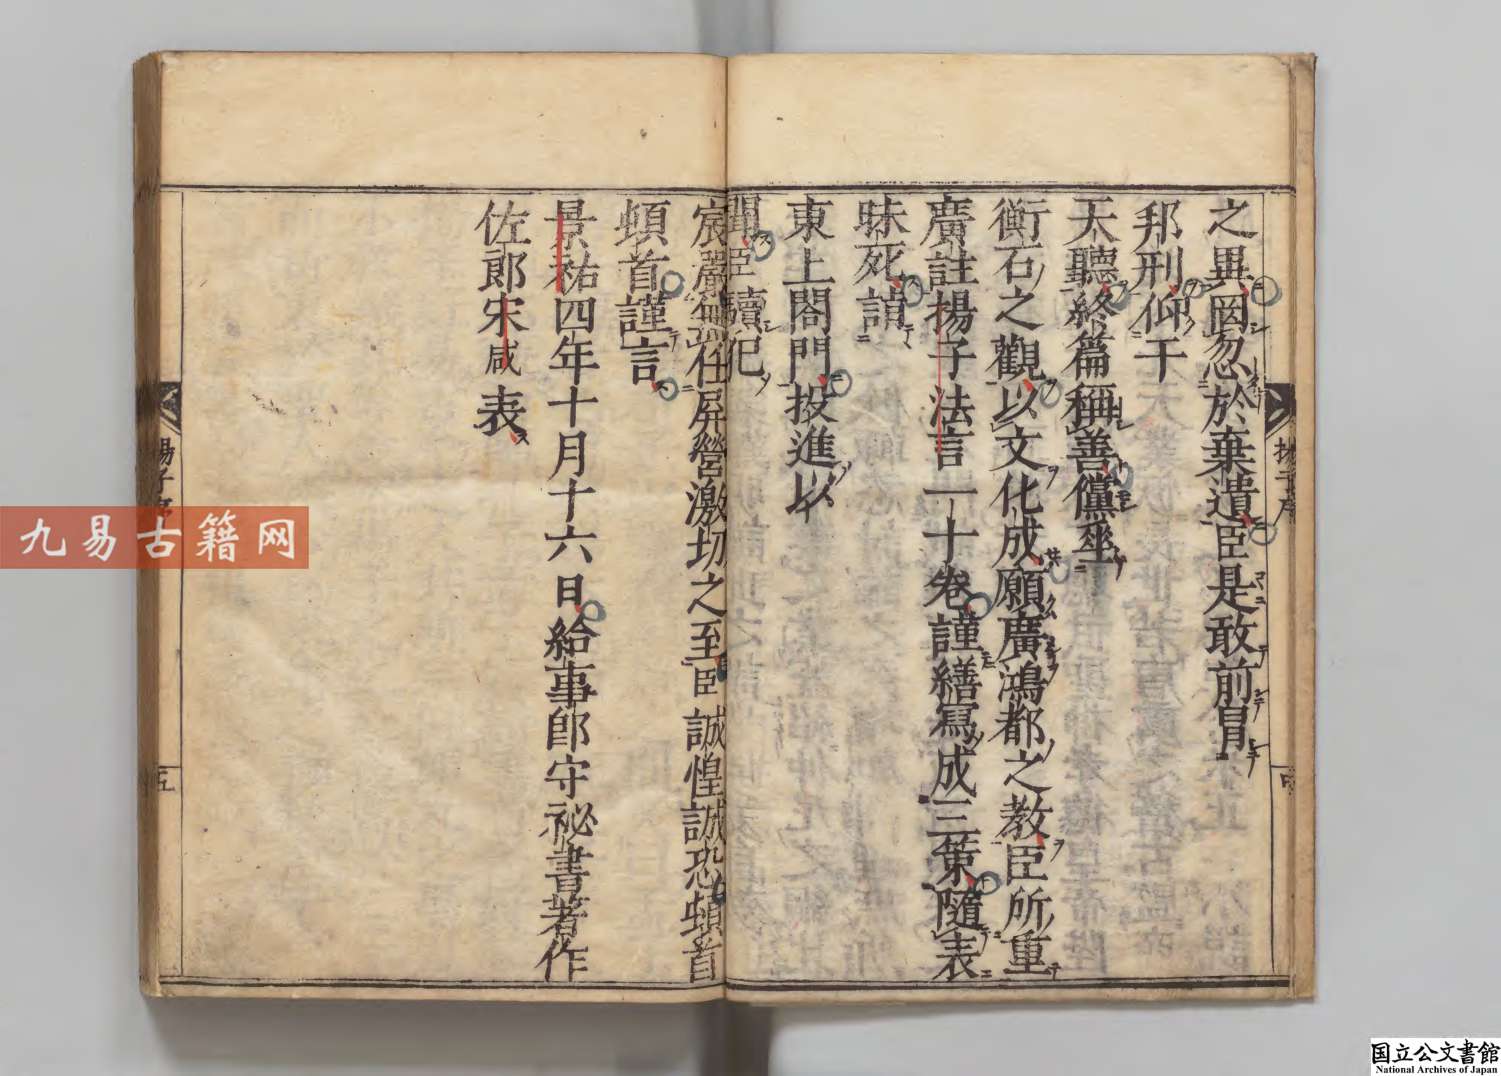 之異罔忽於棄遺臣是敢前冒
邦刑仰干
天聽終篇稱善儻垂
衡石之觀以文化成願廣鴻都之教臣所重
廣註揚子法言一十卷謹繕寫成三策隨表
昧死詣
東上閤門投進以
聞臣瀆犯
宸嚴無任屏營激切之至臣誠惶誠恐頓首
頓首謹言
景祐四年十月十六日給事郎守祕書著作
佐郎宋咸表
揚子序
五
九易古籍网
国立公文書館
National Archives of Japan